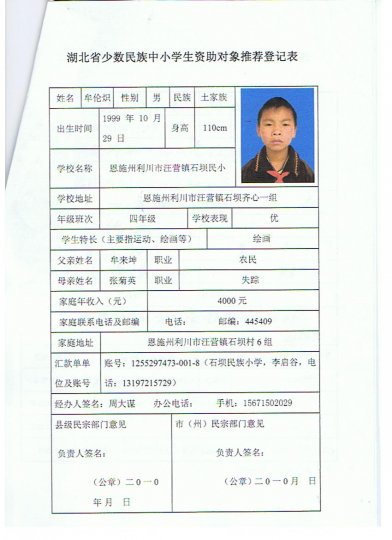 湖北省少数民族中小学生资助对象推荐登记表
姓名 牟伦炽 性别 男 民族 土家族
出生时间 1999 年 10 月 29 日 身高 110cm
学校名称 恩施州利川市汪营镇石坝民小
学校地址 恩施州利川市汪营镇石坝齐心一组
年级班次 四年级 学校表现 优
学生特长（主要指运动、绘画等） 绘画
父亲姓名 牟来坤 职业 农民
母亲姓名 张菊英 职业 失踪
家庭年收入（元） 4000 元
家庭联系电话及邮编 电话： 邮编：445409
家庭地址 恩施州利川市汪营镇石坝村 6 组
汇款单单 账号：1255297473-001-8（石坝民族小学，李启谷，电
位及账号 话：13197215729）
经办人签名：周大谋 办公电话： 手机：15671502029
县级民宗部门意见 市（州）民宗部门意见
负责人签名： 负责人签名：
（公章）二０一０ （公章）二０一０ 月 日
年 月 日